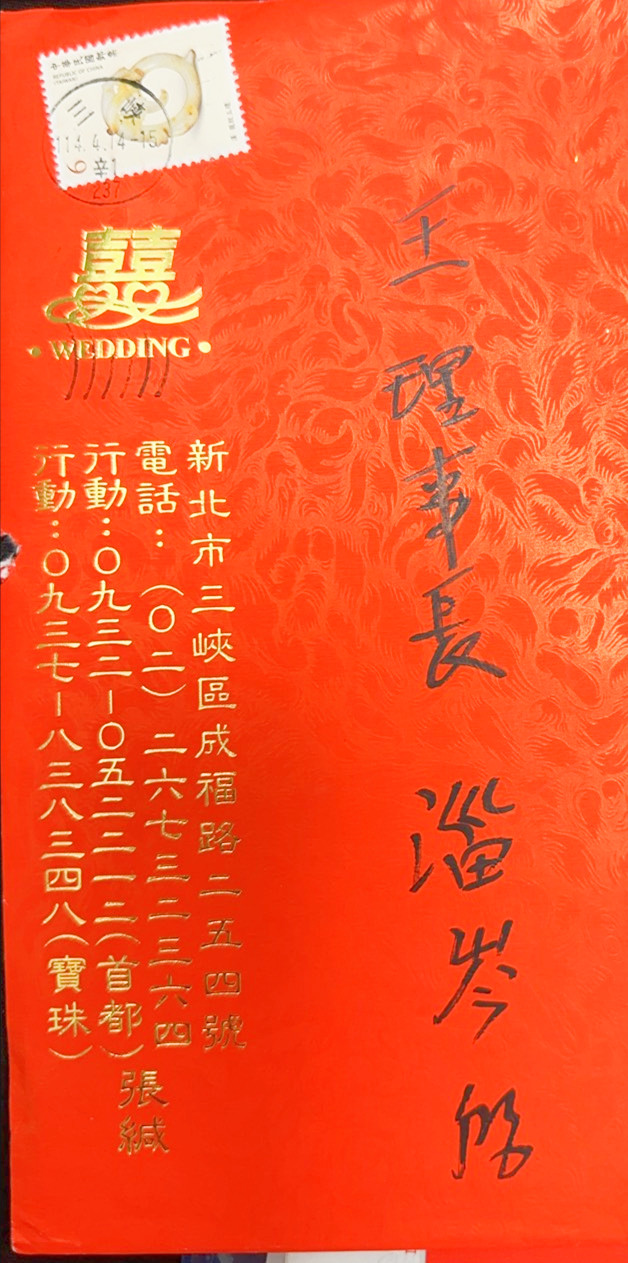 中華民國郵票
REPUBLIC OF CHINA
(TAIWAN)
三峽
114.4.14-15
辛1
237
囍
WEDDING
王理事長 淄岑 啟
新北市三峽區成福路二五四號
電話：（〇二）二六七三二三六四
行動：〇九三二－〇五二二一二（首都）
行動：〇九三七－八三八三四八（寶珠）
張緘